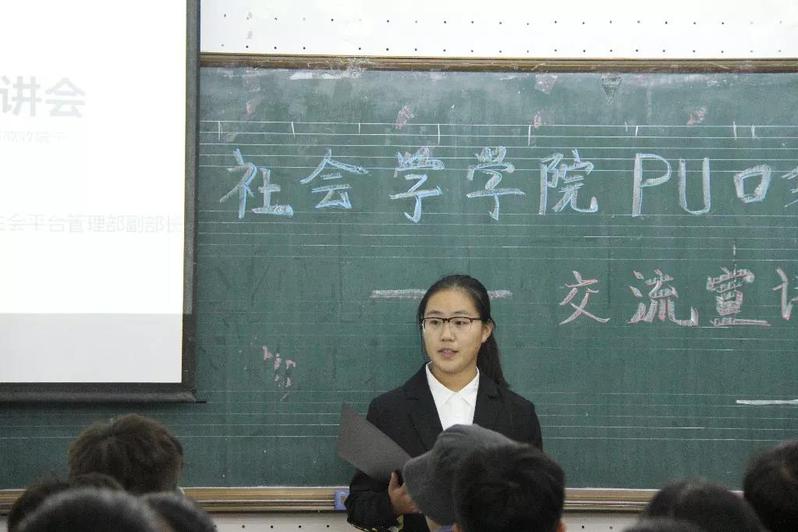 讲会
社会学学院PU口
会平台管理部副部长
——交流宣讲